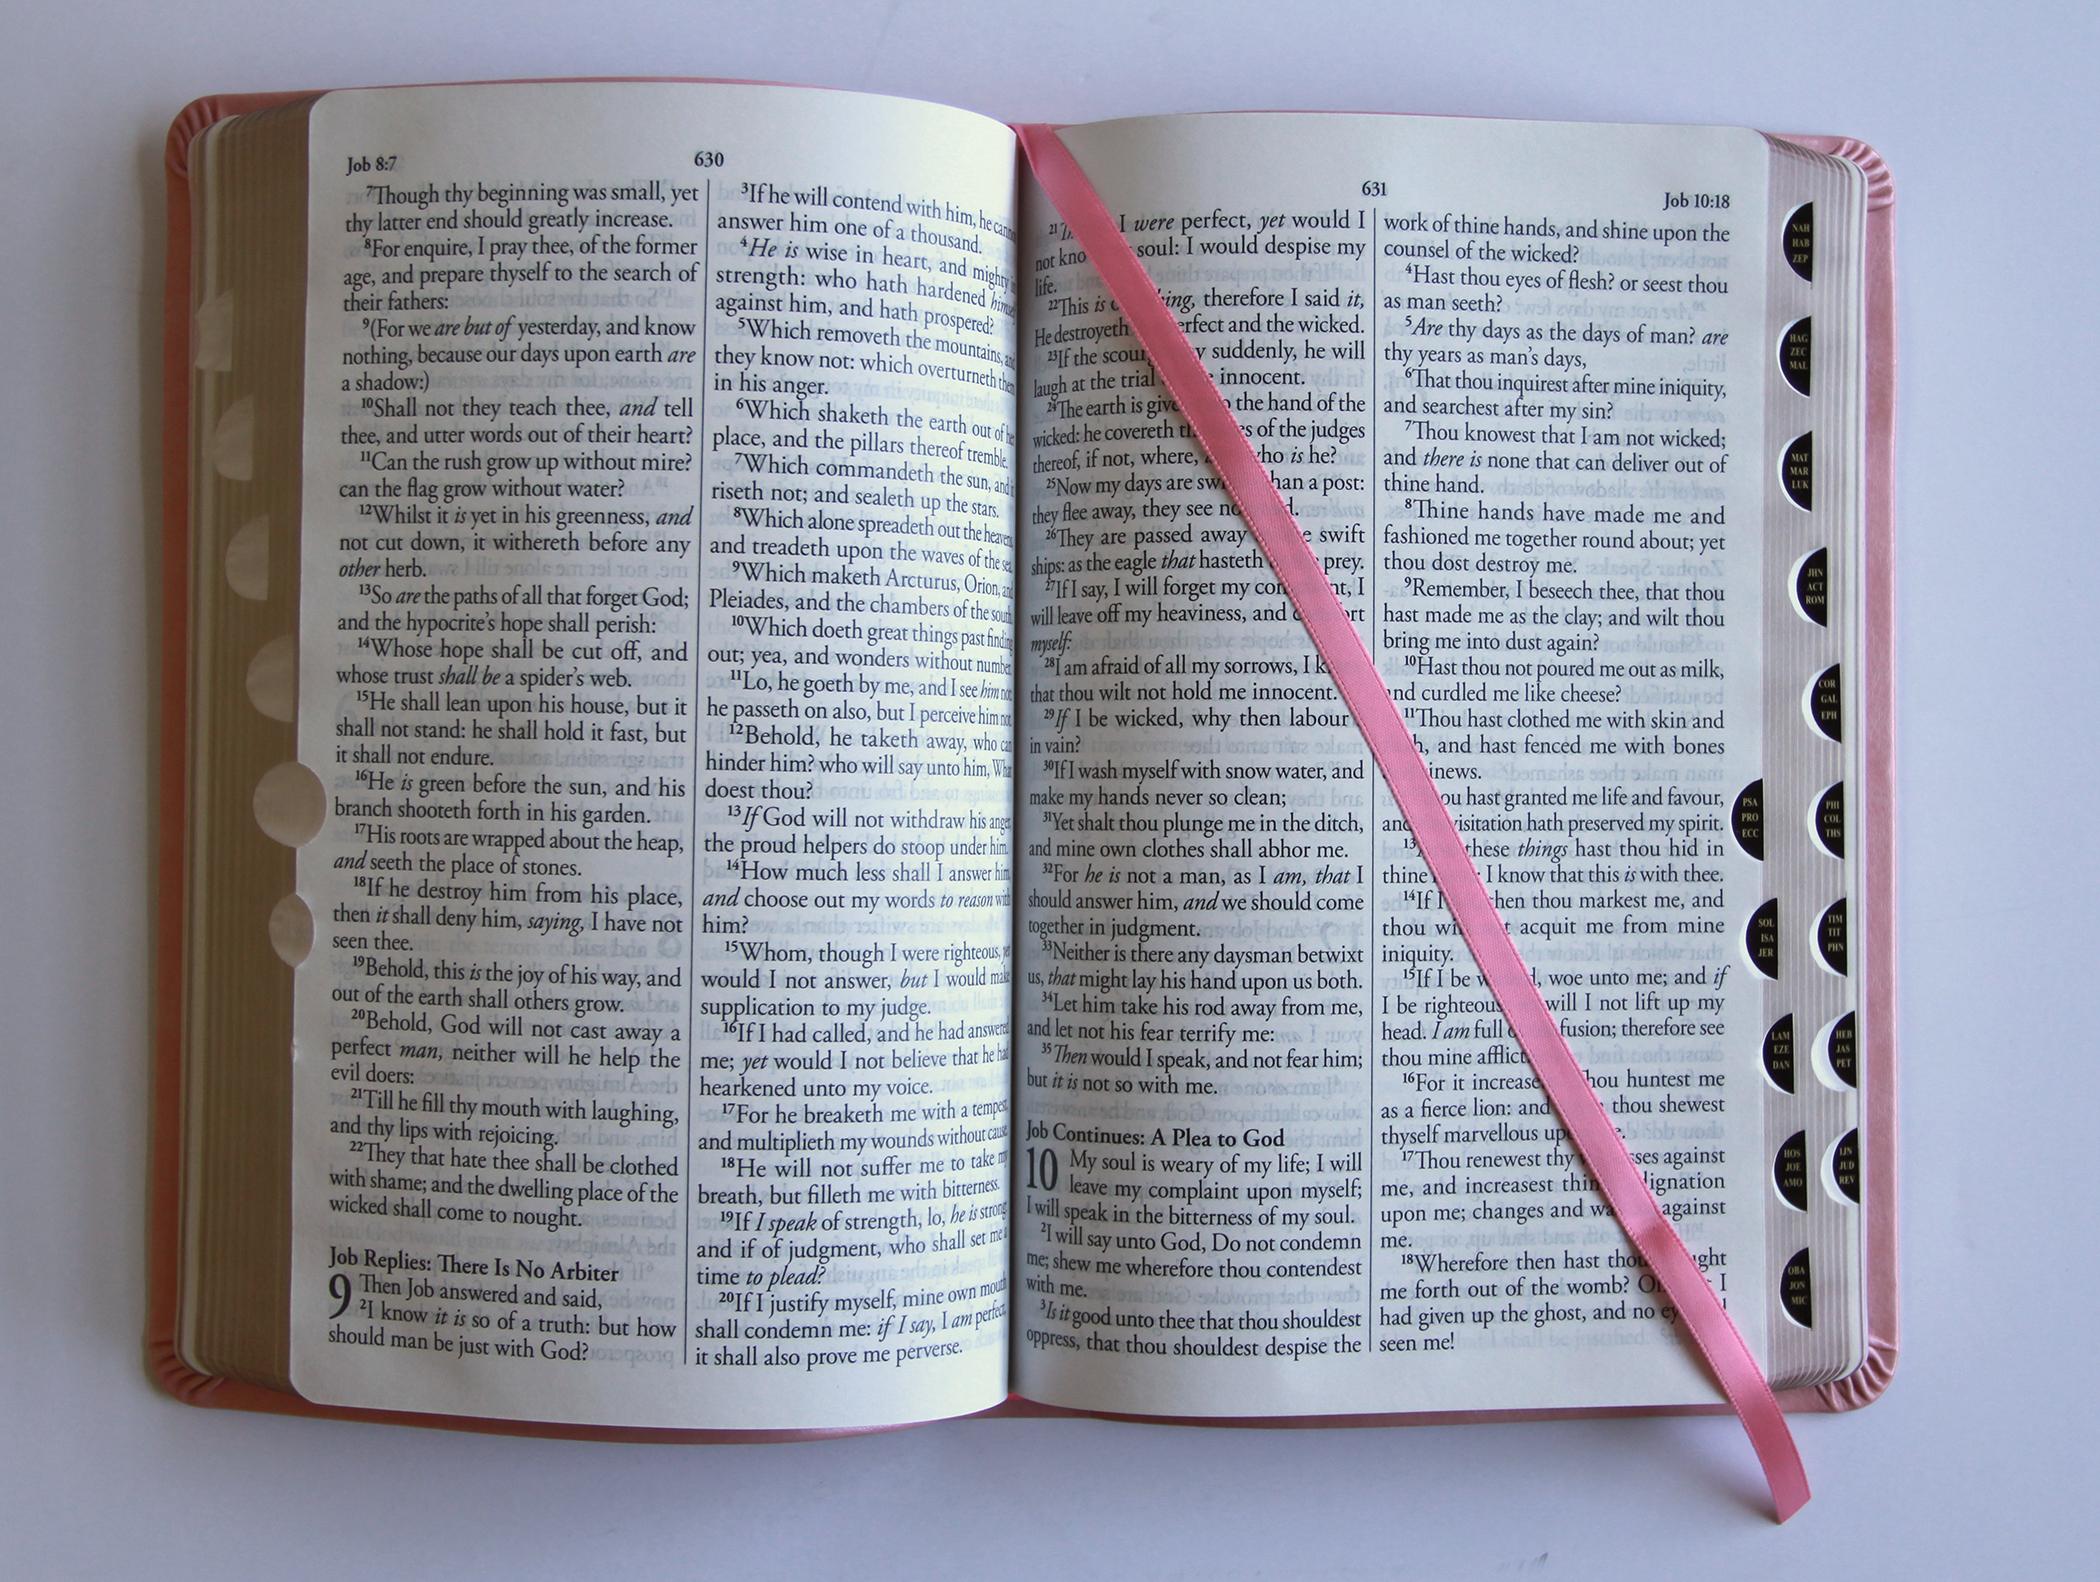 Job 8:7
630
7Though thy beginning was small, yet
thy latter end should greatly increase.
8For enquire, I pray thee, of the former
age, and prepare thyself to the search of
their fathers:
9(For we are but of yesterday, and know
nothing, because our days upon earth are
a shadow:)
10Shall not they teach thee, and tell
thee, and utter words out of their heart?
11Can the rush grow up without mire?
can the flag grow without water?
12Whilst it is yet in his greenness, and
not cut down, it withereth before any
other herb.
13So are the paths of all that forget God;
and the hypocrite's hope shall perish:
14Whose hope shall be cut off, and
whose trust shall be a spider's web.
15He shall lean upon his house, but it
shall not stand: he shall hold it fast, but
it shall not endure.
16He is green before the sun, and his
branch shooteth forth in his garden.
17His roots are wrapped about the heap,
and seeth the place of stones.
18If he destroy him from his place,
then it shall deny him, saying, I have not
seen thee.
19Behold, this is the joy of his way, and
out of the earth shall others grow.
20Behold, God will not cast away a
perfect man, neither will he help the
evil doers:
21Till he fill thy mouth with laughing,
and thy lips with rejoicing.
22They that hate thee shall be clothed
with shame; and the dwelling place of the
wicked shall come to nought.
Job Replies: There Is No Arbiter
9 Then Job answered and said,
2I know it is so of a truth: but how
should man be just with God?
3If he will contend with him, he
answer him one of a thousand.
4He is wise in heart, and mighty
strength: who hath hardened
against him, and hath prospered?
5Which removeth the mountains,
they know not: which overturneth
in his anger.
6Which shaketh the earth out of
place, and the pillars thereof tremble.
7Which commandeth the sun, and
riseth not; and sealeth up the stars.
8Which alone spreadeth out the
and treadeth upon the waves of the
9Which maketh Arcturus, Orion,
Pleiades, and the chambers of the
10Which doeth great things past finding
out; yea, and wonders without number
11Lo, he goeth by me, and I see him
he passeth on also, but I perceive him
12Behold, he taketh away, who can
hinder him? who will say unto him,
doest thou?
13If God will not withdraw his
the proud helpers do stoop under him.
14How much less shall I answer him,
and choose out my words to reason with
him?
15Whom, though I were righteous,
would I not answer, but I would make
supplication to my judge.
16If I had called, and he had answered
me; yet would I not believe that he had
hearkened unto my voice.
17For he breaketh me with a tempest
and multiplieth my wounds without cause
18He will not suffer me to take my
breath, but filleth me with bitterness.
19If I speak of strength, lo, he is strong
and if of judgment, who shall set me a
time to plead?
20If I justify myself, mine own mouth
shall condemn me: if I say, I am perfect,
it shall also prove me perverse.
631
Job 10:18
21 I were perfect, yet would I
not soul: I would despise my
life.
22This is therefore I said it,
He destroyeth and the wicked.
23If the suddenly, he will
laugh at the trial innocent.
24The earth is the hand of the
wicked: he covereth of the judges
thereof, if not, where, who is he?
25Now my days are than a post:
they flee away, they see
26They are passed away swift
ships: as the eagle that hasteth prey.
27If I say, I will forget my I
will leave off my heaviness, and
myself:
28I am afraid of all my sorrows, I
that thou wilt not hold me innocent.
29If I be wicked, why then labour
in vain?
30If I wash myself with snow water, and
make my hands never so clean;
31Yet shalt thou plunge me in the ditch,
and mine own clothes shall abhor me.
32For he is not a man, as I am, that I
should answer him, and we should come
together in judgment.
33Neither is there any daysman betwixt
us, that might lay his hand upon us both.
34Let him take his rod away from me,
and let not his fear terrify me:
35Then would I speak, and not fear him;
but it is not so with me.
Job Continues: A Plea to God
10 My soul is weary of my life; I will
leave my complaint upon myself;
I will speak in the bitterness of my soul.
2I will say unto God, Do not condemn
me; shew me wherefore thou contendest
with me.
3Is it good unto thee that thou shouldest
oppress, that thou shouldest despise the
work of thine hands, and shine upon the
counsel of the wicked?
4Hast thou eyes of flesh? or seest thou
as man seeth?
5Are thy days as the days of man? are
thy years as man's days,
6That thou inquirest after mine iniquity,
and searchest after my sin?
7Thou knowest that I am not wicked;
and there is none that can deliver out of
thine hand.
8Thine hands have made me and
fashioned me together round about; yet
thou dost destroy me.
9Remember, I beseech thee, that thou
hast made me as the clay; and wilt thou
bring me into dust again?
10Hast thou not poured me out as milk,
and curdled me like cheese?
11Thou hast clothed me with skin and
and hast fenced me with bones
hast granted me life and favour,
and hath preserved my spirit.
13 these things hast thou hid in
thine I know that this is with thee.
14If I then thou markest me, and
thou acquit me from mine
iniquity.
15If I be woe unto me; and if
I be will I not lift up my
head. I am full therefore see
thou mine
16For it thou huntest me
as a fierce lion: and thou shewest
thyself marvellous
17Thou renewest thy against
me, and increasest
upon me; changes and against
me.
18Wherefore then hast
me forth out of the womb? I
had given up the ghost, and no
seen me!
NAH
HAB
ZEP
HAG
ZEC
MAL
MAT
MAR
LUK
JHN
ACT
ROM
COR
GAL
EPH
PSA
PRO
ECC
PHI
COL
THS
SOL
ISA
JER
TIM
TIT
PHN
LAM
EZE
DAN
HEB
JAS
PET
HOS
JOE
AMO
IJN
JUD
REV
OBA
JON
MIC